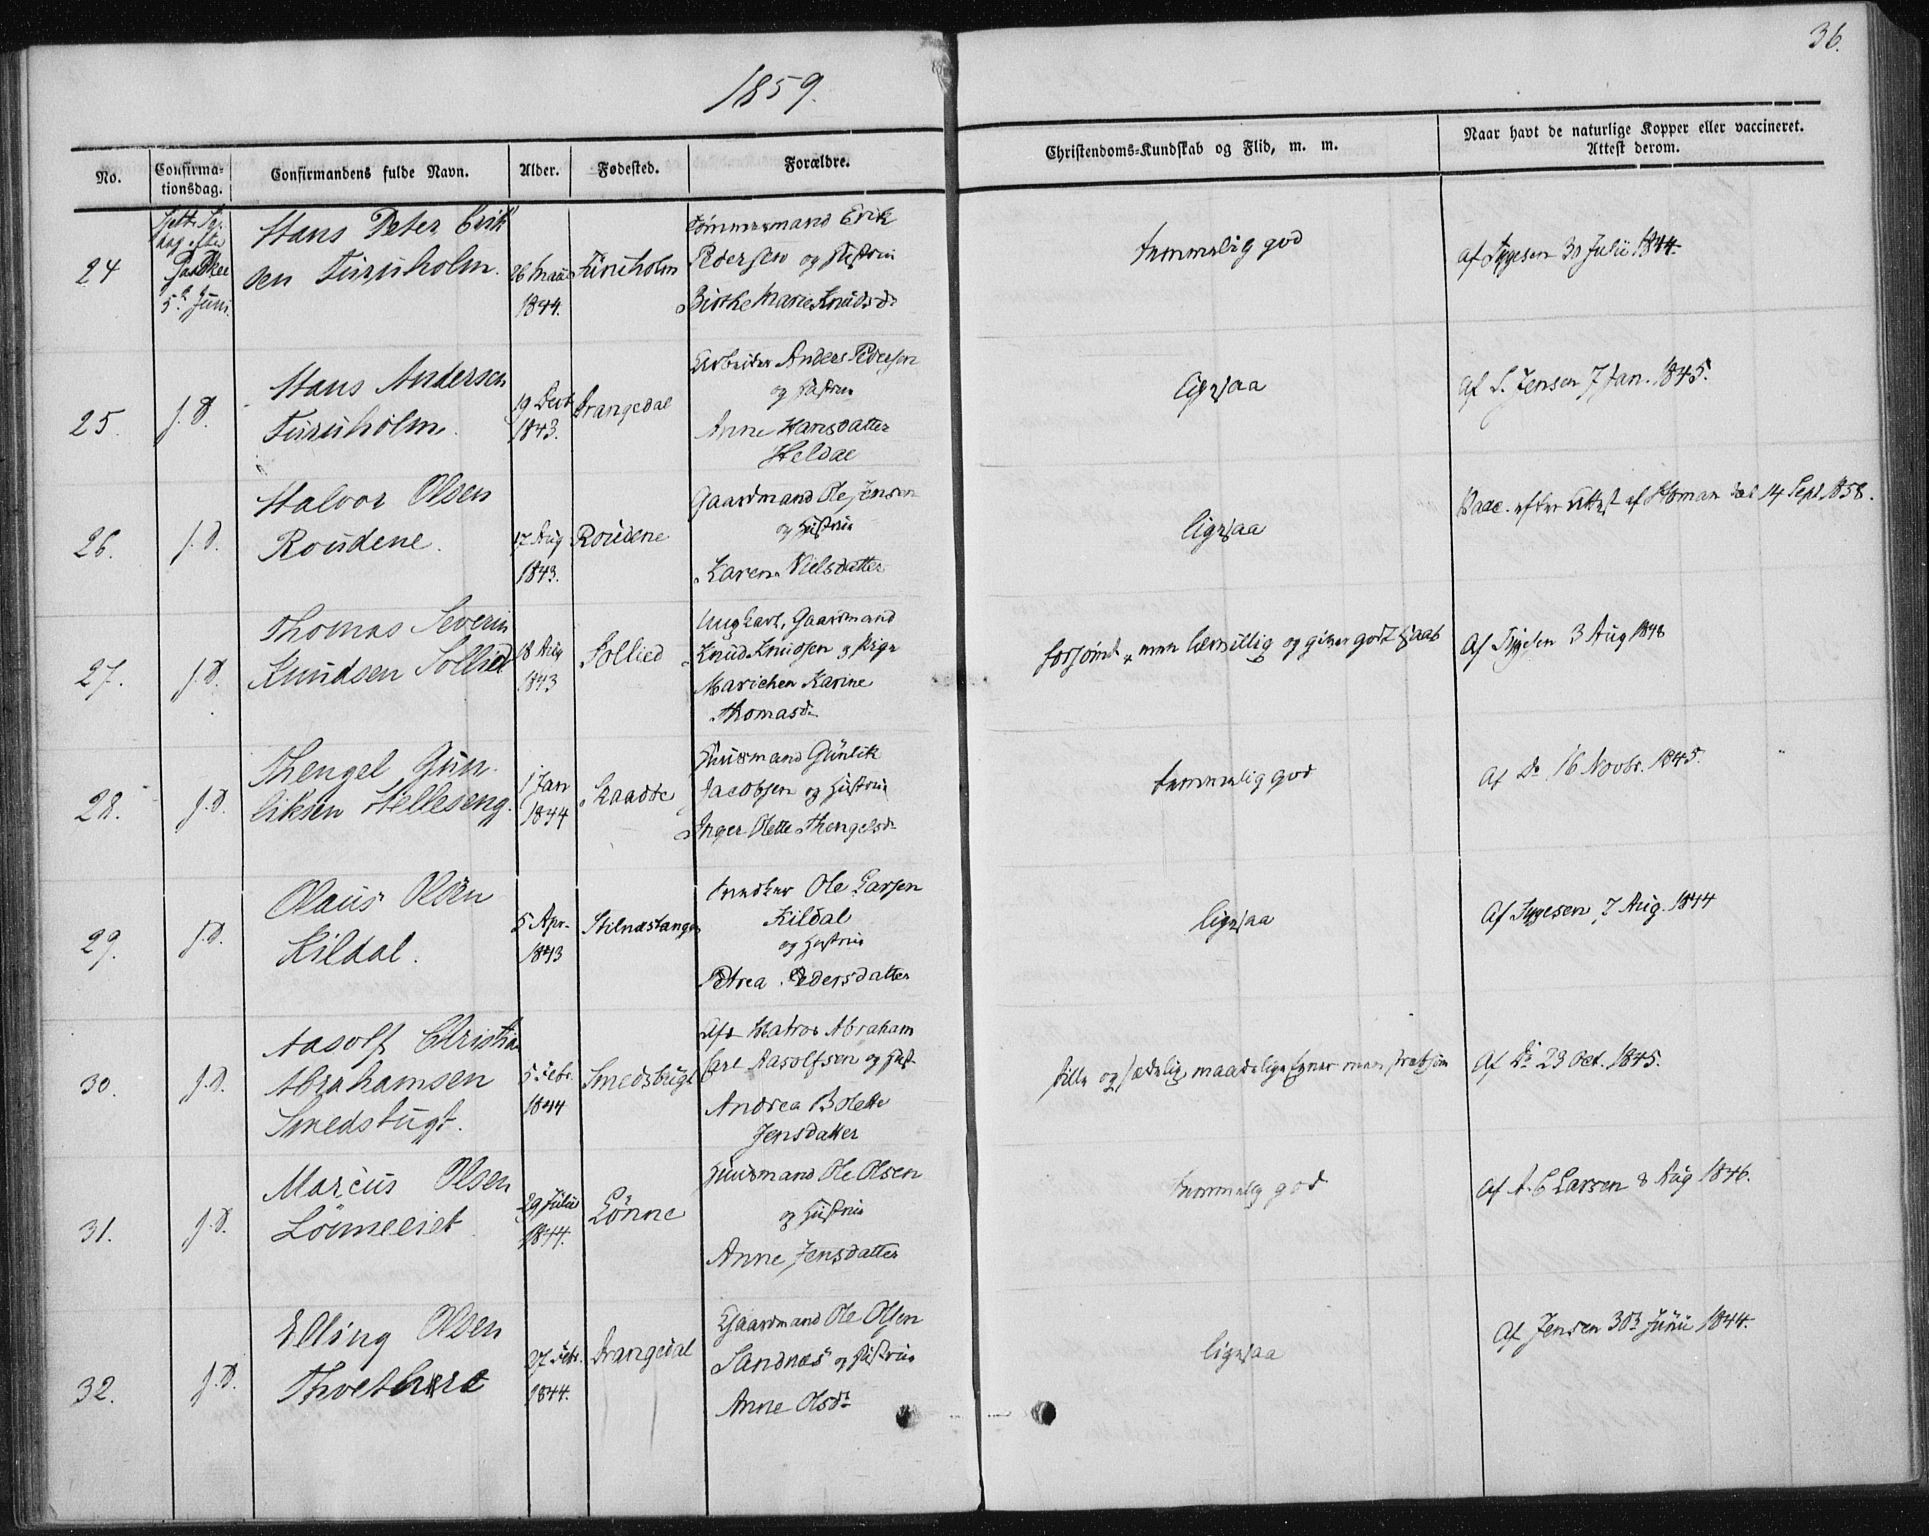 36.
1859.
No.
Confirma-
tionsdag.
Confirmandens fulde Navn.
Alder.
Fødested.
Forældre.
Christendoms-Kundskab og Flid, m. m.
Naar havt de naturlige Kopper eller vaccineret.
Attest derom.
24
5te Juni
Hans Peter Erik
sen Furuholm.
26 Mai
1844.
Furuholm
Tømmermand Erik
Pedersen og Hustru
Birthe Marie Knudsdr
temmelig god
Af Tygesen 30 Julii 1844.
25.
f. D.
Hans Andersen
Furuholm.
19 Decbr
1843.
Drangedal
Arbeider Anders Pedersen
og Hustru
Anne Hansdatter
Heldae
ligesaa
Af S. Jensen 7 Jan. 1845.
26.
f. D.
Halvor Olsen
Roudene.
17 Aug
1843.
Roudene
Gaardmand Ole Jensen
og Hustru
Karen Nielsdatter
ligesaa
Vacc. efter Attest af Homan 14 Sept 1858.
27.
f. D.
Thomas Severin
Knudsen Sollied
18 Aug
1843
Sollied
Ungkarl, Gaardmand
Knud Knudsen og Pige
Marichen Karine
Thomasdr
forsømt, men lærvillig og giver godt Haab
Af Tygesen 3 Aug 1848
28.
f. D.
Thengel Gun-
liksen Helleseng.
1 Jan
1844
Kaadde
Huusmand Gunlik
Jacobsen og Hustru
Inger Olette Thengelsdr
temmelig god
Af Do 16 Novbr. 1845.
29.
f. D.
Olaus Olsen
Kildal.
5 Apr.
1843
Stilnæstangen
Snedker Ole Larsen
Kildal
og Hustru
Petrea Pedersdatter
ligesaa
Af Tygesen 7 Aug. 1844
30.
f. D.
Aasolf Christian
Abrahamsen
Smedsbugt.
5 Febr.
1844
Smedsbugt
Afd Matros Abraham
Carl Aasolfsen og Hust.
Andrea Bolette
Jensdatter
stille og sædelig, maadelige Evner men stræbsom
Af Do 23 Oct. 1845.
31.
f. D.
Marcus Olsen
Lønneeiet
29 Julii
1844.
Lønne
Huusmand Ole Olsen
og Hustru
Anne Jensdatter
temmelig god
Af A. C Larsen 8 Aug 1846.
32.
f. D.
Elling Olsen
27 Febr.
1844.
Drangedal
Gaardmand Ole Olsen
Sandnæs og Hustru
Anne Olsdr
ligesaa
Af Jensen 30 Junii 1844.